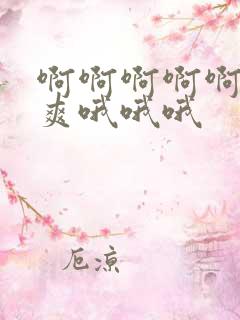 啊啊啊啊啊
爽哦哦哦
厄凉